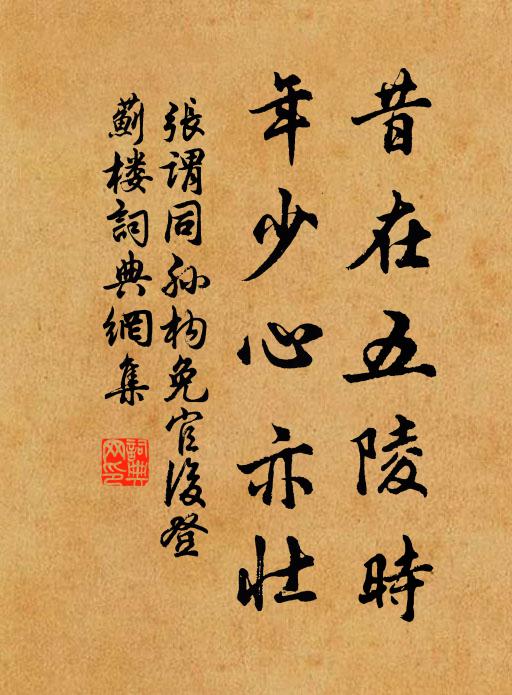 昔在五陵時
年少心亦壯
張謂同孫构免官後登
薊楼詞典網集
詞典
网印